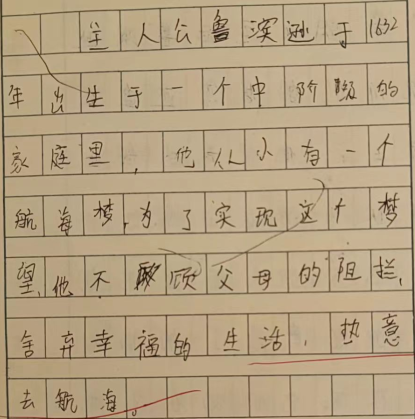 主人公鲁滨逊于1632
年出生于一个中阶级的
家庭里,他从小有一个
航海梦,为了实现这个梦
望,他不顾父母的阻拦,
舍弃幸福的生活,执意
去航海。